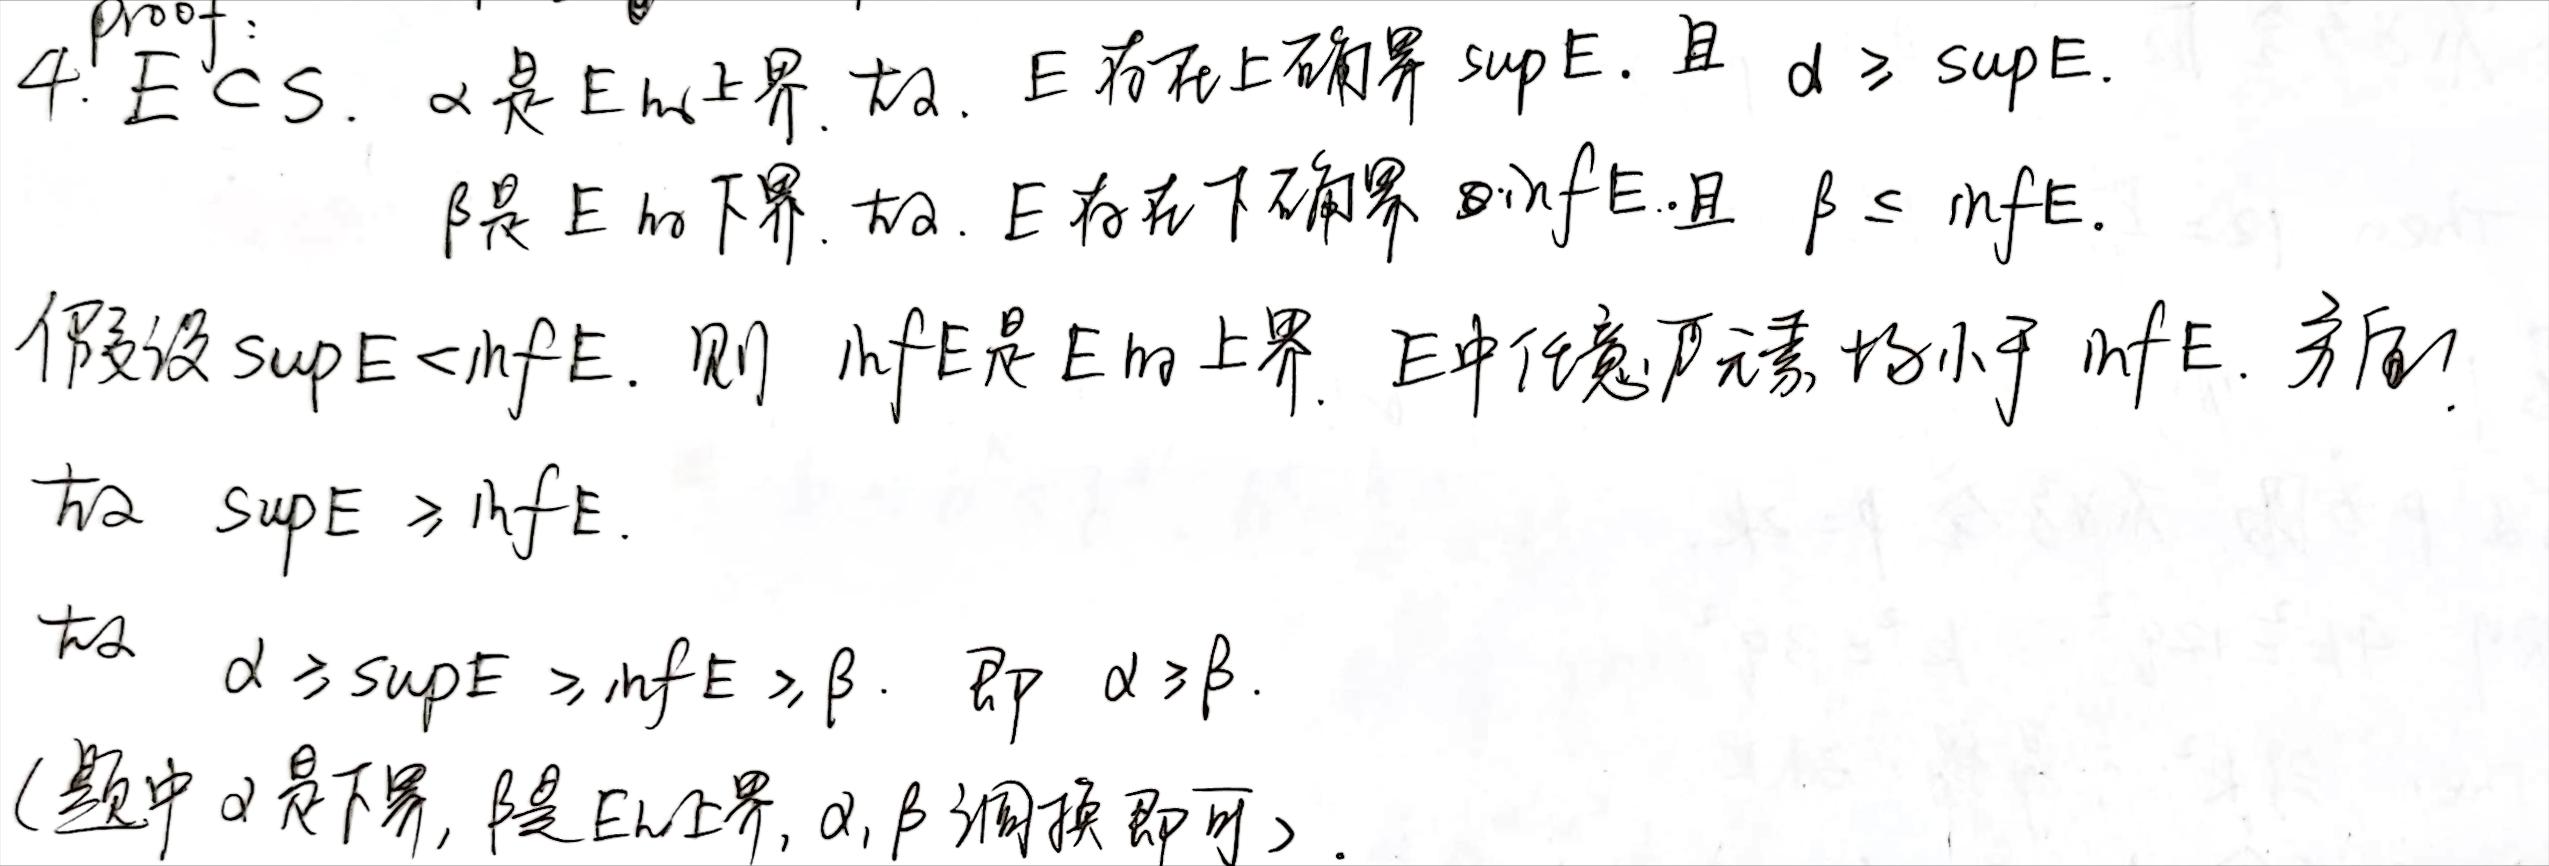 proof:
4. E⊂S. α是E的上界. 故. E存在上确界 supE. 且 α ≥ supE.
β是E的下界. 故. E存在下确界 infE. 且 β ≤ infE.
假设 supE < infE. 则 infE是E的上界. E中任意元素均小于 infE. 矛盾!
故 supE ≥ infE.
故 α ≥ supE ≥ infE ≥ β. 即 α ≥ β.
(题中α是下界, β是E的上界, α, β调换即可).